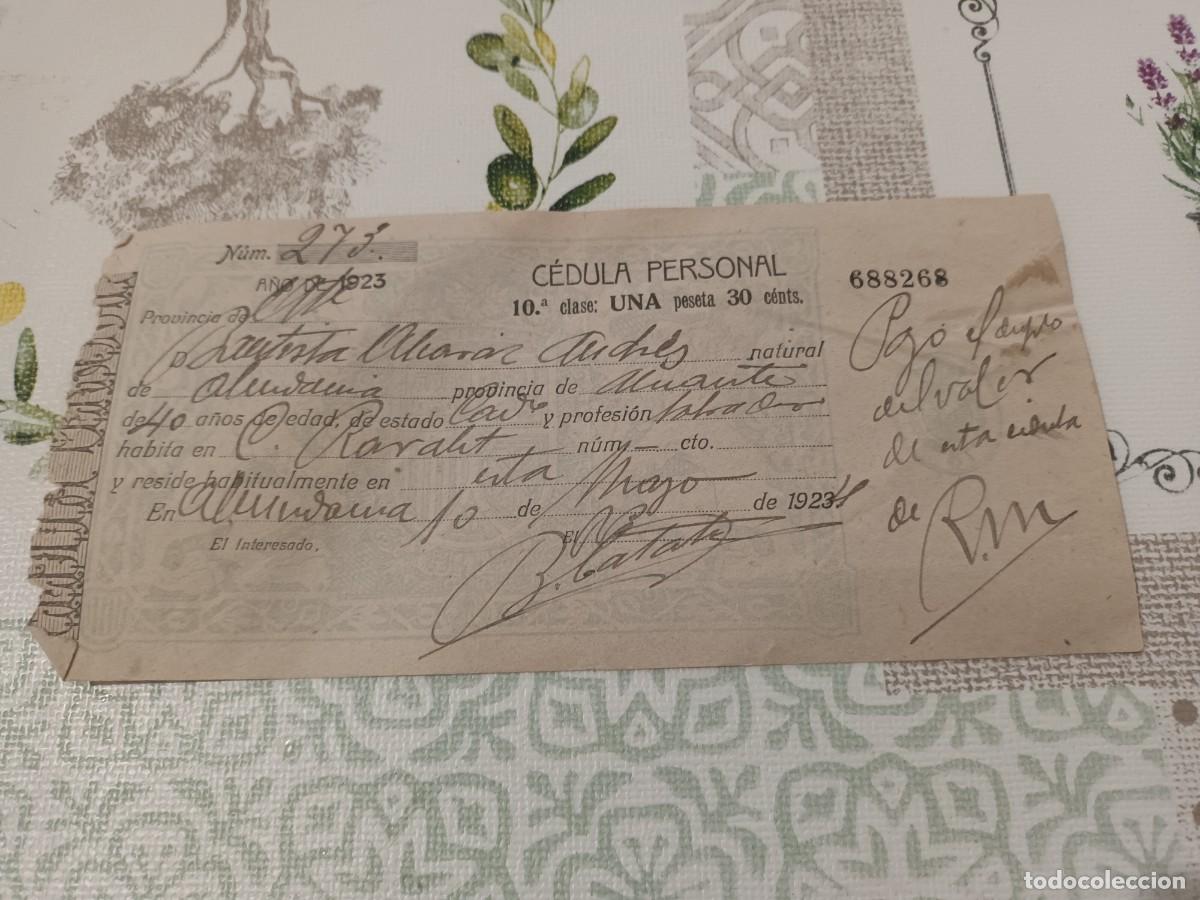 Núm. 273.
AÑO DE 1923
CÉDULA PERSONAL
10.ª clase: UNA peseta 30 cénts.
688268
Provincia de
D Bautista Andrés natural
de Almudaina provincia de Alicante
de 40 años de edad, de estado Cado y profesión labrador
habita en C. Ravalet núm — cto.
y reside habitualmente en esta
En Almudaina 10 de Mayo de 1923
El Interesado,
El
Pagó el duplo
del valor
de esta cédula
de
todocoleccion